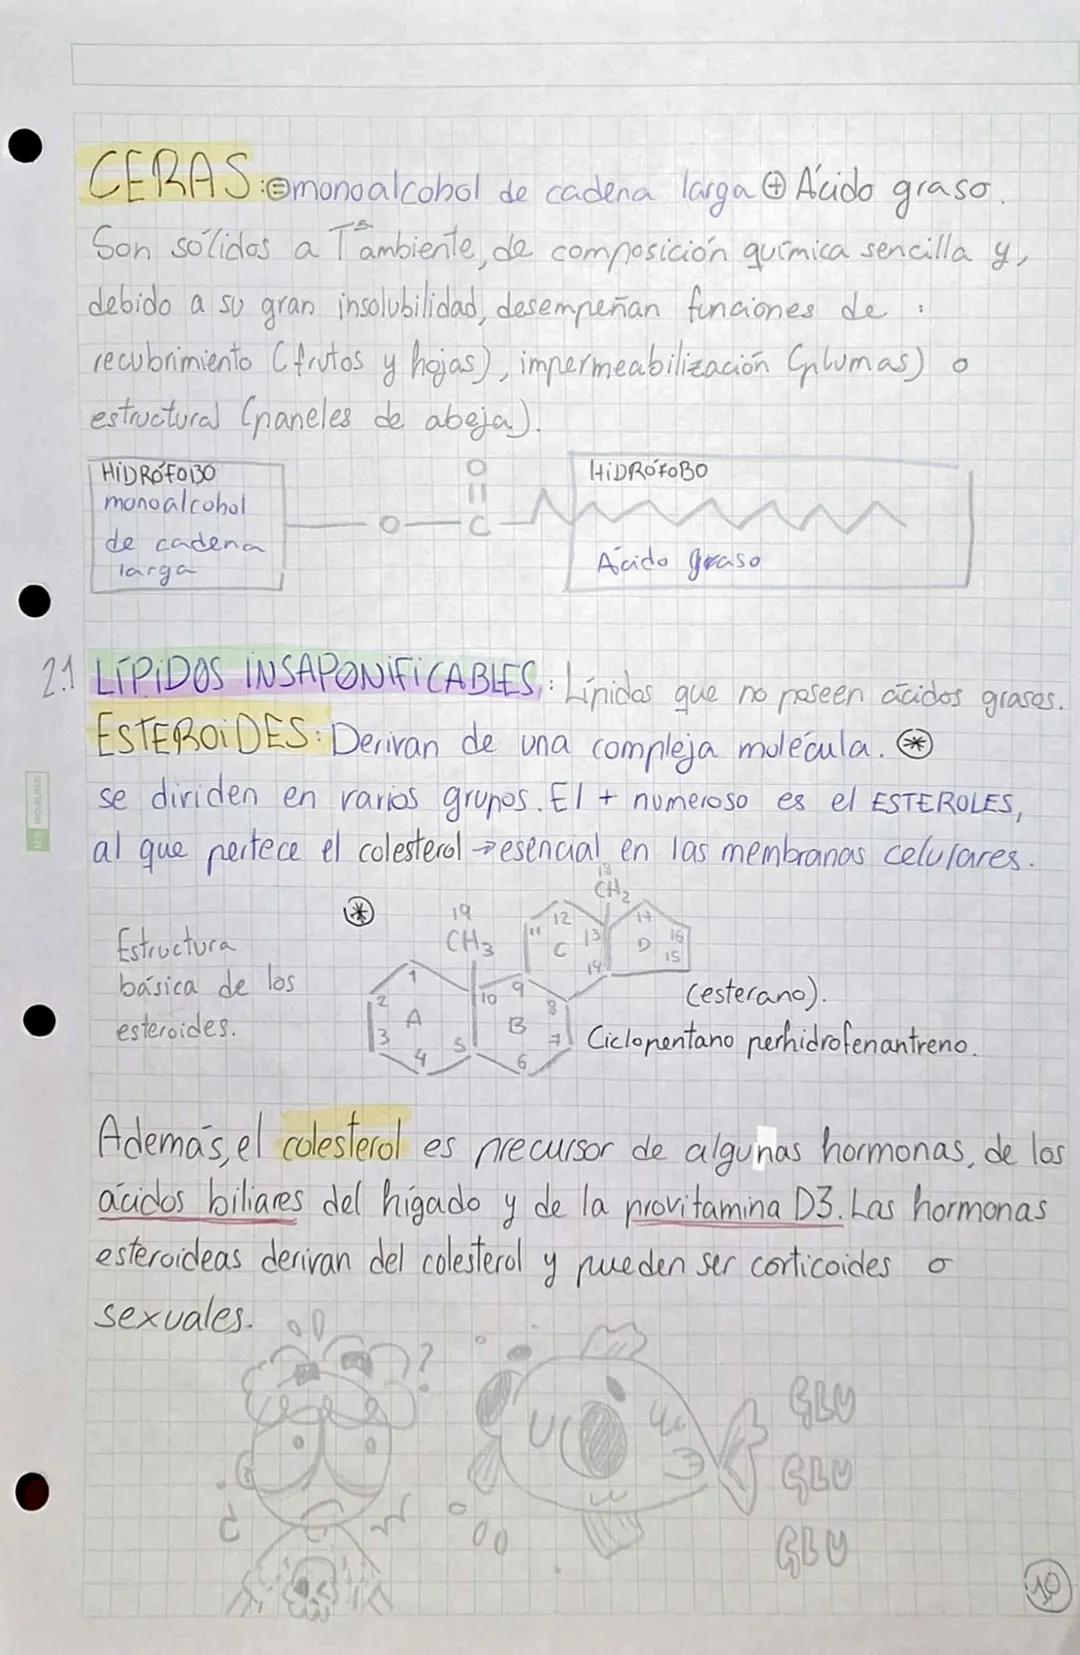 CERAS:⊜monoalcohol de cadena larga ⊕ Ácido graso.
Son sólidos a Tª ambiente, de composición química sencilla y,
debido a su gran insolubilidad, desempeñan funciones de :
recubrimiento (frutos y hojas), impermeabilización (plumas) o
estructural (paneles de abeja).
HIDRÓFOBO
monoalcohol
de cadena
larga
O
O
C
HIDRÓFOBO
Ácido graso
2.1 LÍPIDOS INSAPONIFICABLES: Lípidos que no poseen ácidos grasos.
ESTEROIDES: Derivan de una compleja molécula. *
se dividen en varios grupos. El + numeroso es el ESTEROLES,
al que pertece el colesterol → esencial en las membranas celulares.
Estructura
básica de los
esteroides.
*
18
CH2
19
CH3
11 12 13 14 C
17 16 15 D
1 2 3 4 5 A
10 9 8 7 6 B
(esterano).
Ciclopentano perhidrofenantreno.
Además, el colesterol es precursor de algunas hormonas, de los
ácidos biliares del hígado y de la provitamina D3. Las hormonas
esteroideas derivan del colesterol y pueden ser corticoides o
sexuales.
?
¿
GLU
GLU
GLU
10